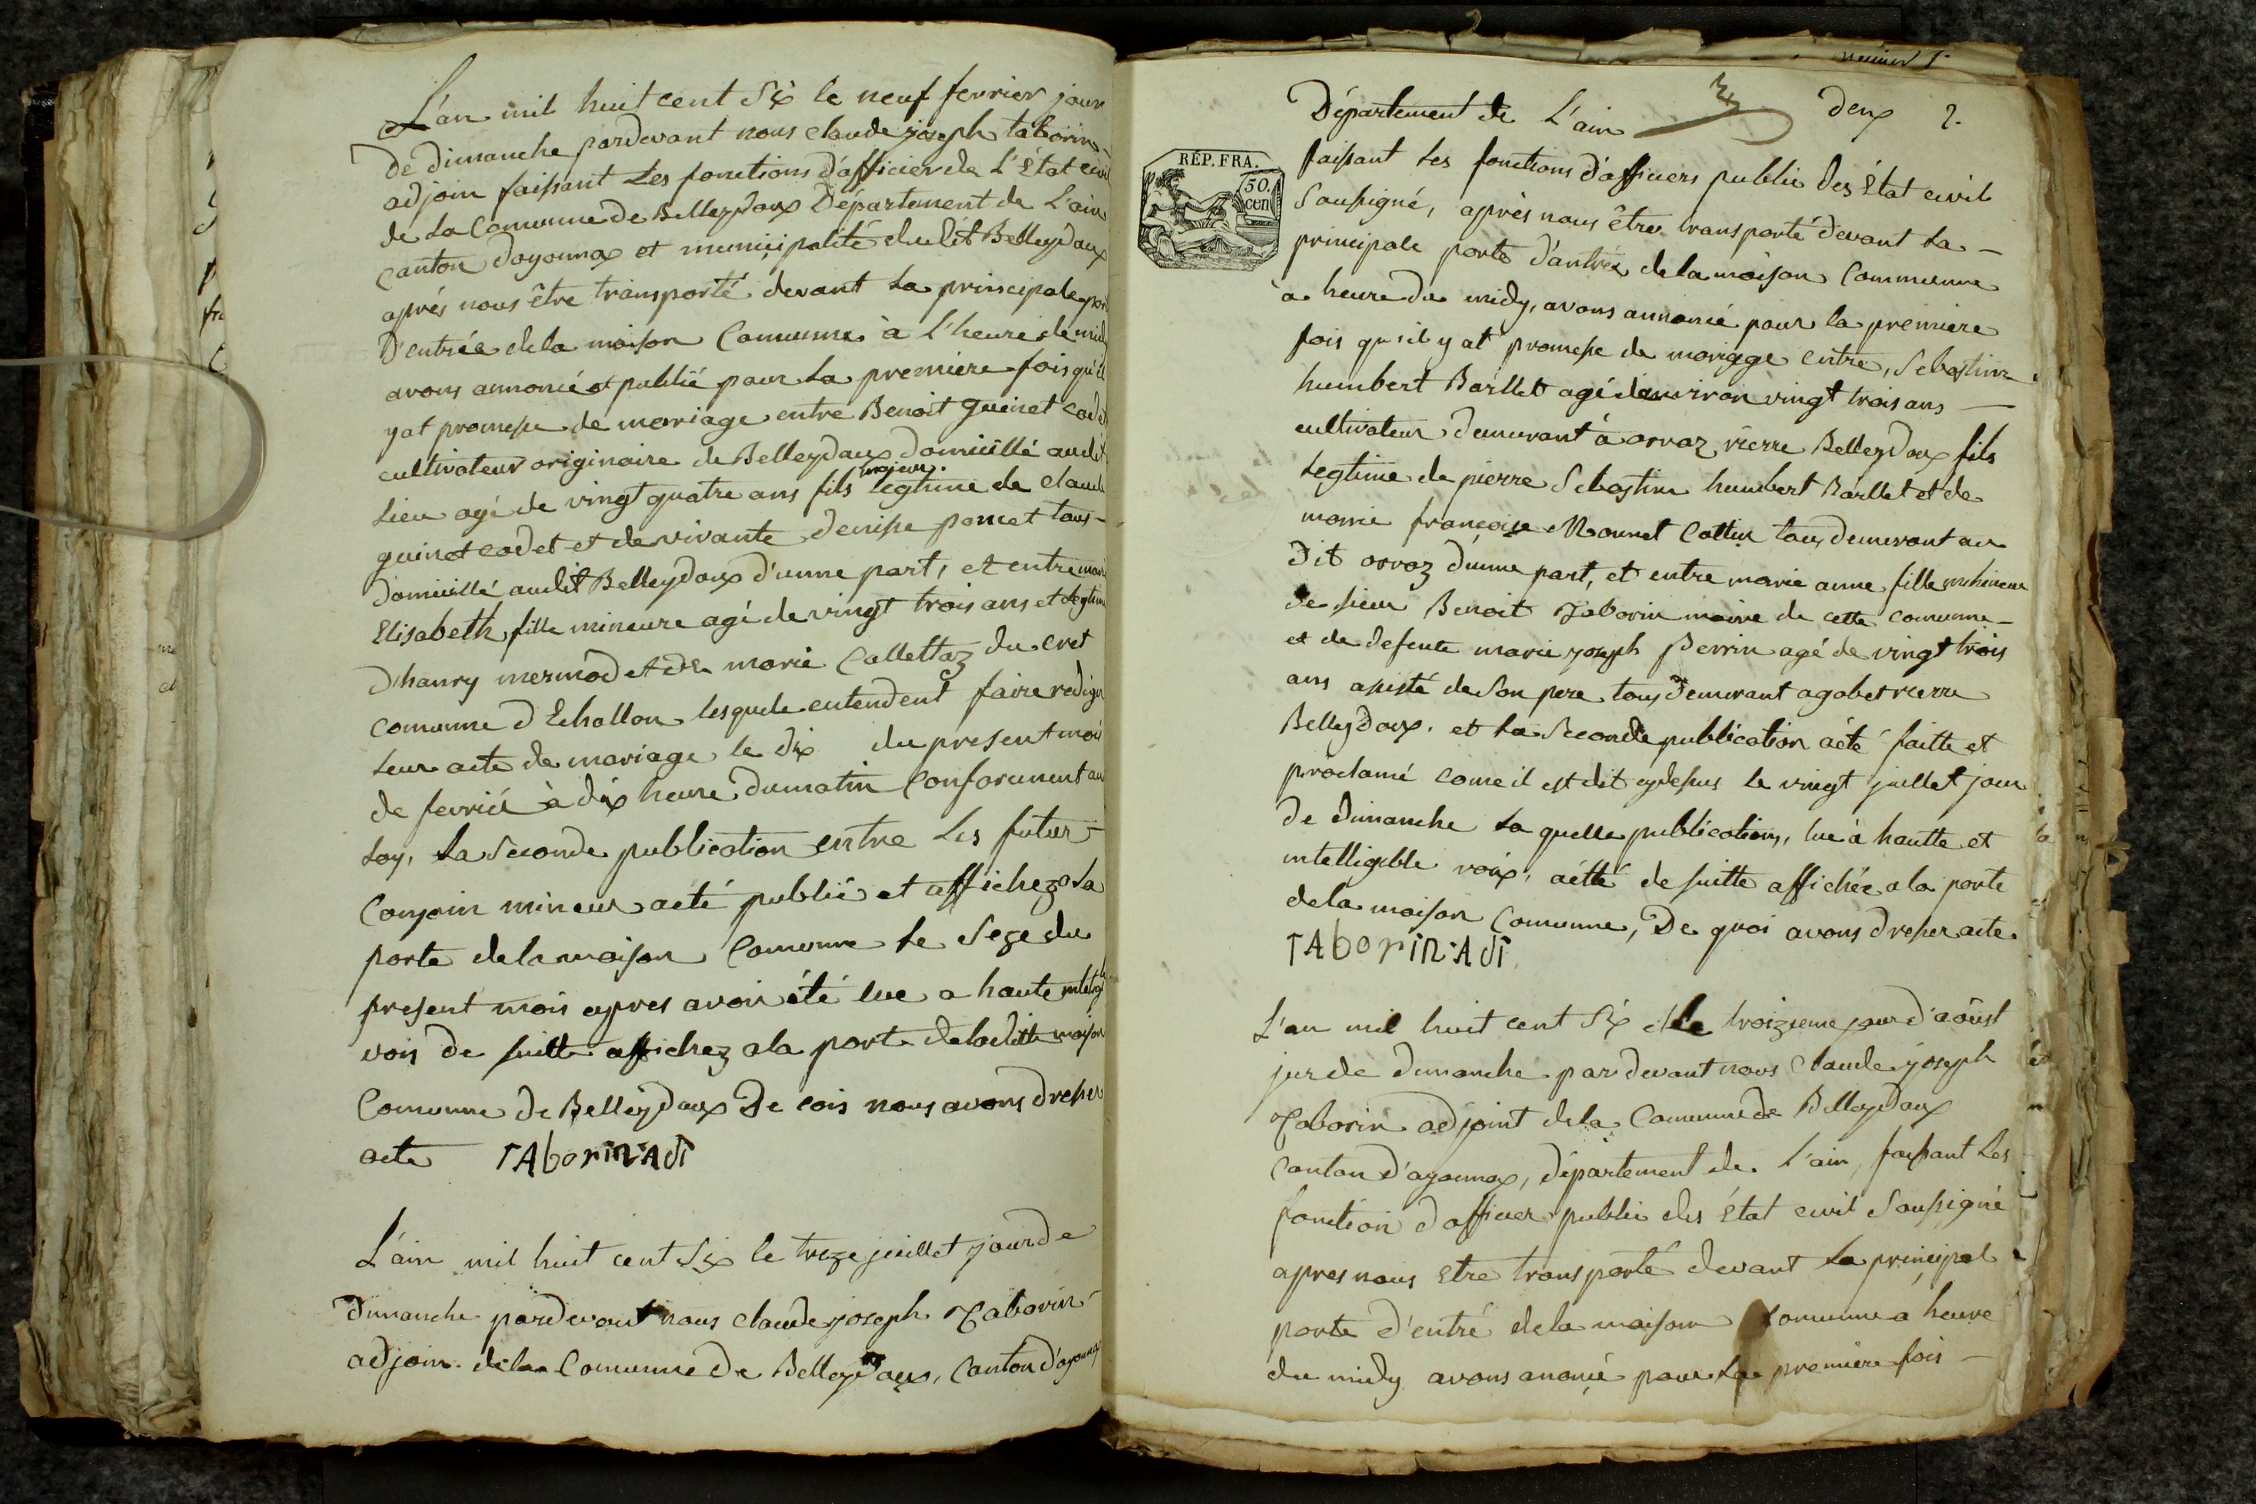 L'an mil huit cent Six le neuf fevrier jour
de dimanche pardevant nous claude joseph taborin
adjoin faisant Les fonctions d'afficier de L'État civil
de La Comunne de Belleydoux Département de L'ain
canton doyonnax et municipalité dudit Belleydoux
après nous être transporté devant La principale por
D'entrée dela maison Comunne à l'heure de midy
avons annoncé et publié pour La premiere fois qu'il
y at promesse de marriage entre Benoit guinet cadet
cultivateur originaire de Belleydoux domicillé audit
majeur
Lieu agé de vingt quatre ans fils legtime de claude
guinet cadet et de vivante denise poncet tous
domicillé audit Belleydoux d'unne part, et entre marie
Elisabeth fille mineure agé de vingt trois ans et legtime
d'hanry mermod et de marie Collettaz du cret
comunne d'Echallon lesquels entendent faire rediger
Leur acte de mariage le dix du present mois
de fevrié à dix heure du matin conforement au
Loy, La Seconde publication entre Les futur
Conjoin mineur acté publié et affichez a La
porte dela maison Comunne Le Seze du
present mois apres avoir été lue a haute intelig
vois de suitte affichez ala porte deladitte maison
Comunne de Belleydoux De cois nous avons dresser
acte TAborin Adj
L'ain mil huit cent Six le treze juillet jour de
dimanche pardevant nous claude joseph Taborin
adjoin dela Comunne de Belleydoux, Canton d'oyonnax
Département de L'ain deux 2.
RÉP. FRA.
50. cen
faisant Les fonctions d'afficiers public des État civil
Sousigné, après nous être transporté devant La
principale porte d'antrée dela maison Commune
a heure de midy, avons annoncé pour la premiere
fois qu'il y at promesse de mariage entre, Sebastien
humbert Barllet agé d'environ vingt trois ans
cultivateur demeurant à orvaz rierre Belleydoux fils
Legtime de pierre Sebastien humbert Barllet et de
marie françoise Mounet Cottin tous demeurant au
dit orvaz d'unne part, et entre marie anne fille mineure
de sieur Benoit Taborin maire de cette comunne
et de defente marie joseph Perrin agé de vingt trois
ans asisté de Son pere tous demeurant a gobet rierre
Belleydoux. et La Seconde publication acté faitte et
proclamé come il est dit cydessus le vingt juillet jour
de dimanche La quelle publications, lue à hautte et
intelligible voix, aétté de suitte affichée a la porte
dela maison Comunne, De quoi avons dresser acte
TAborin Adj
L'an mil huit cent Six et le troizieme jour d'aoûst
jur de dimanche pardevant nous Claude joseph
Taborin adjoint dela Comunne de Belleydoux
Canton d'oyonnax, département de L'ain, faisant Les
fonction d'afficier public des État civil Sousigné
apres nous Etre transporté devant La principal
porte d'entré dela maison Comunne a heure
du midy avons anoncé pour La premiere fois